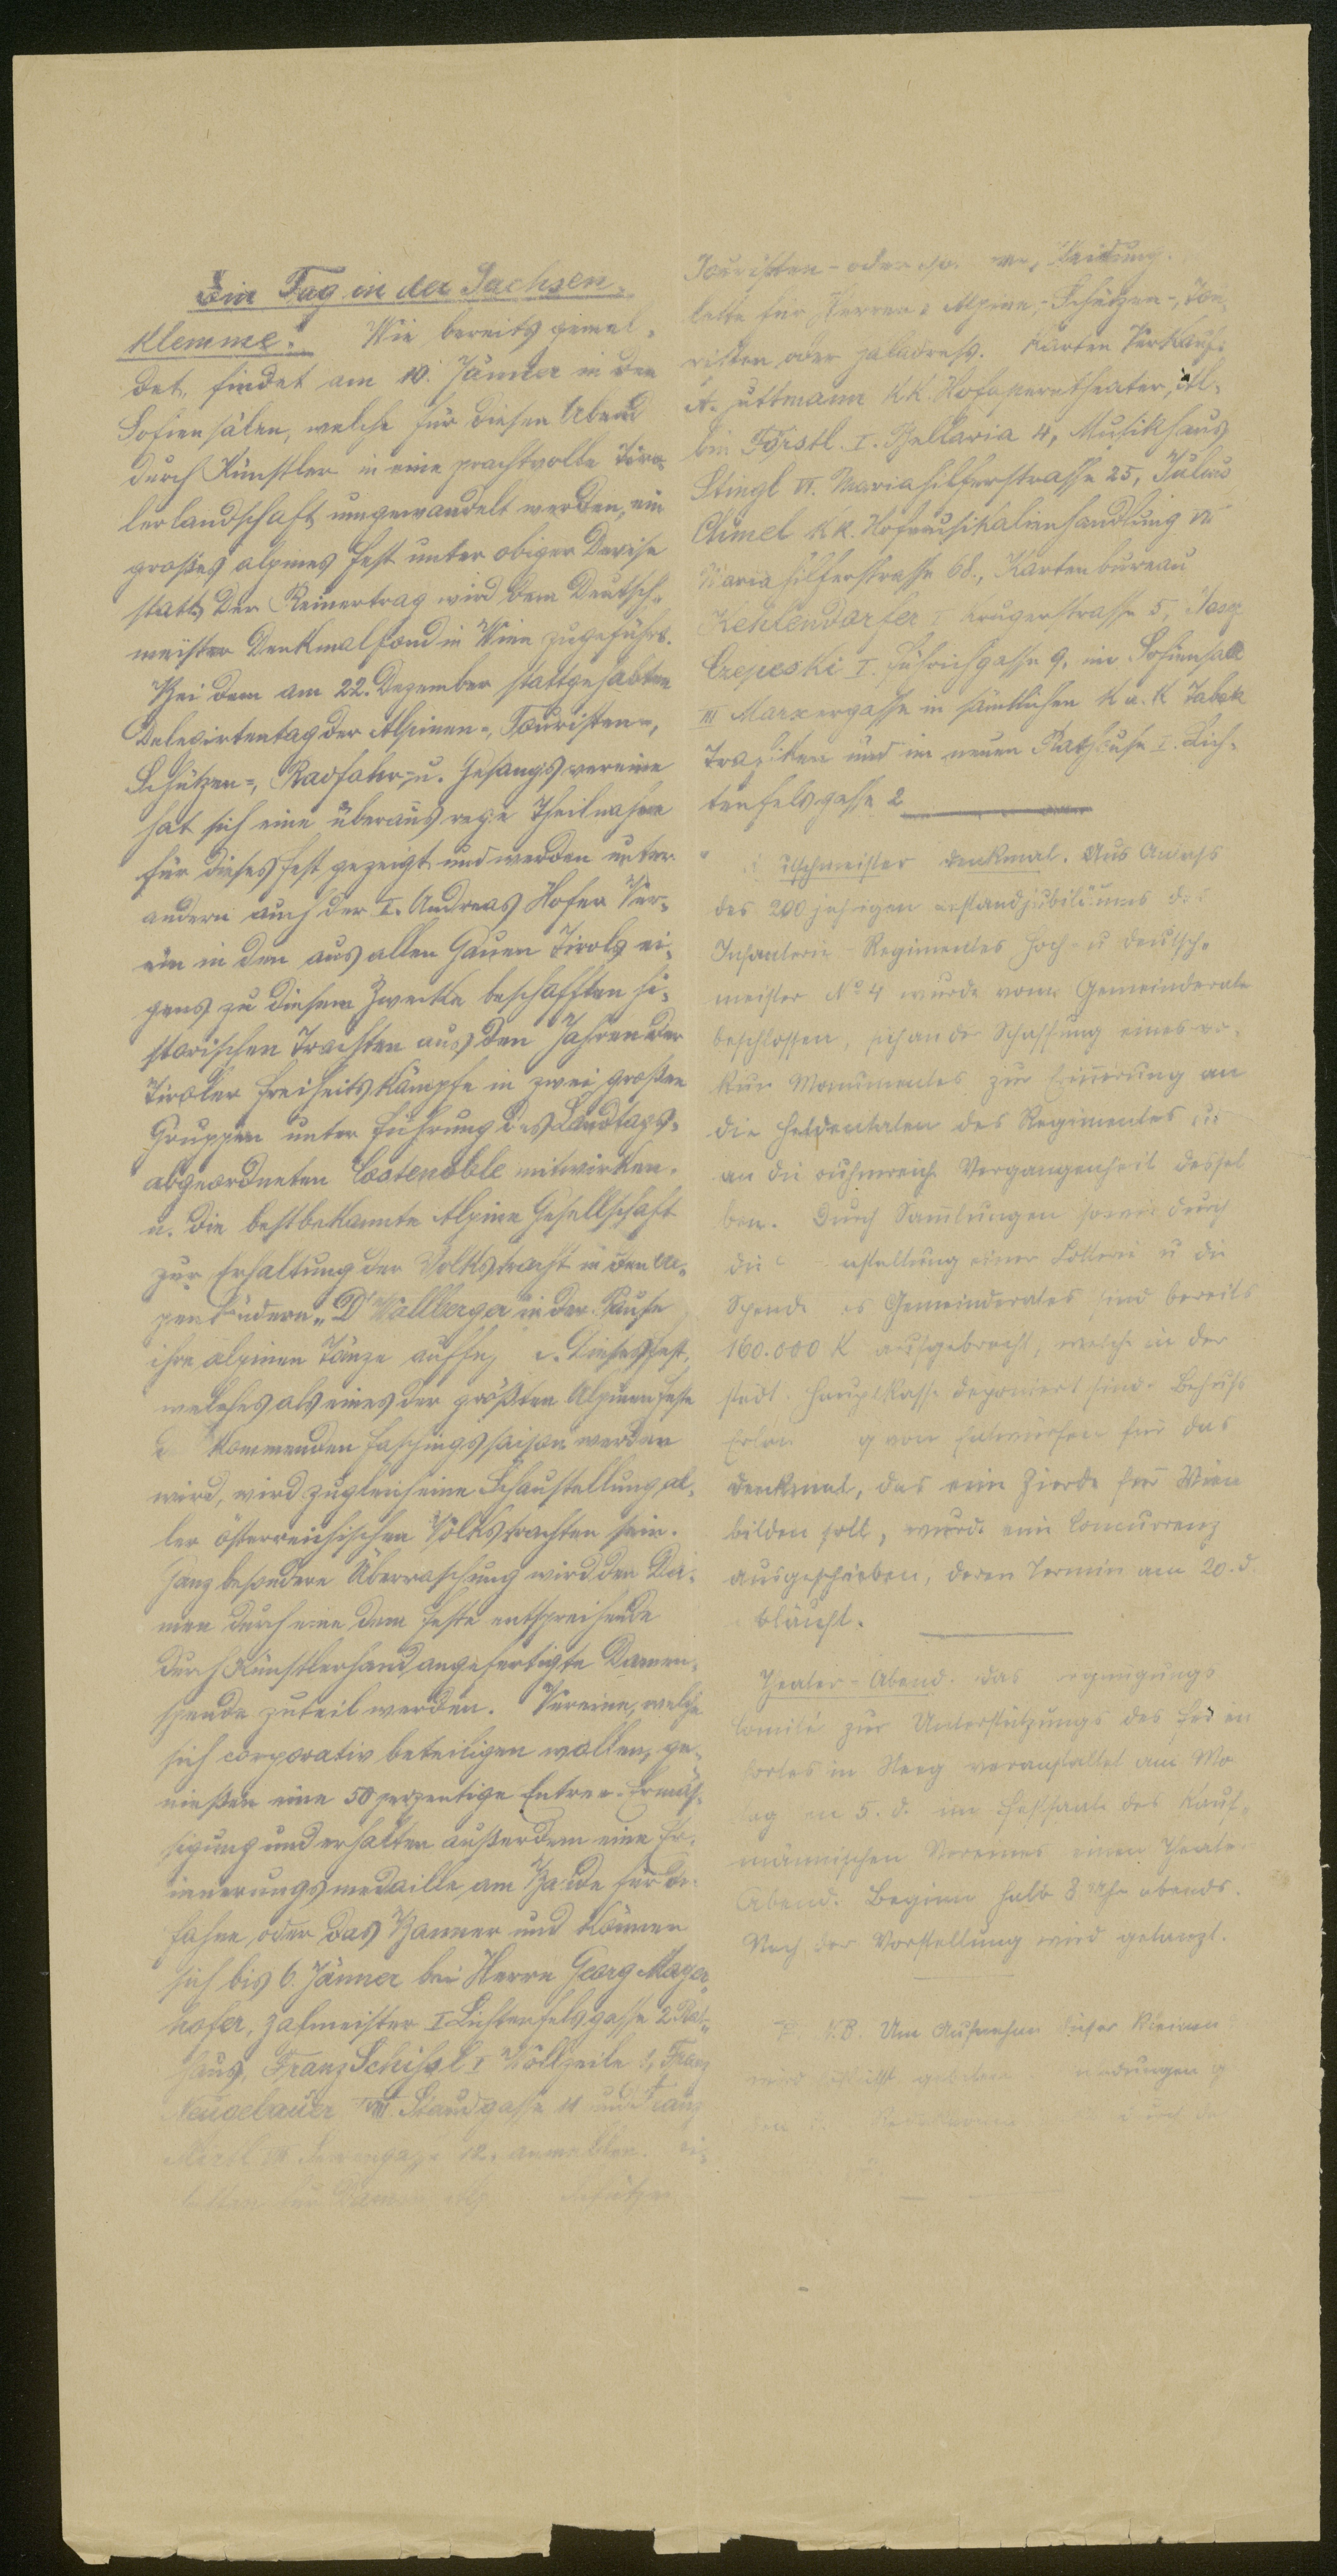 Ein Tag in der Sachsen-
klemme. Wie bereits gemel-
det, findet am 10. Jänner in den
Sofiensälen, welche für diesen Abend
durch Künstler in eine prachtvolle Tiro-
lerlandschaft umgewandelt werden, ein
großes alpines Fest unter obiger Devise
statt. Der Reinertrag wird dem Deutsch-
meister Denkmalfond in Wien zugeführt.
Bei dem am 22. Dezember stattgehabten
Delegirtentag der Alpinen-, Touristen-,
Schützen-, Radfahr- u. Gesangsvereine
hat sich eine überaus rege Theilnahme
für dieses Fest gezeigt und werden unter
andern auch der I. Andreas Hofer Ver-
ein in den aus allen Gauen Tirols ei-
gens zu diesem Zwecke beschafften hi-
storischen Trachten aus den Jahren der
Tiroler Freiheitskämpfe in zwei großen
Gruppen unter Führung des Landtags-
abgeordneten Costenoble mitwirken.
u. die bestbekannte Alpine Gesellschaft
zur Erhaltung der Volkstracht in den Al-
penländern „D'Wallberger in der Pause
ihre alpinen Tänze Dieses Fest,
welches als eines der größten Alpinen Feste
kommenden Faschingssaison werden
wird, wird zugleich eine Schaustellung al-
ler österreichischen Volkstrachten sein.
Ganz besondere Überraschung wird den Da-
men durch eine dem Feste entsprechende
durch Künstlerhand angefertigte Damen-
spende zuteil werden. Vereine, welche
sich corporativ beteiligen wollen, ge-
nießen eine 50 perzentige Entree-Ermäs-
sigung und erhalten außerdem eine Er-
innerungsmedaille am Bande für die
Fahne oder das Banner und können
sich bis 6. Jänner bei Herrn Georg Mayer-
hofer, Zalmeister I Lichtenfelsgasse 2 Rat-
haus, Franz Schihsl I Wollzeile Franz
Neugebauer VIII Staudgasse 11 und Franz
12, anmelden.
Damen Schützen
Touristen- oder Kleidung.
lette für Herren: Alpine-, Schützen-, Tou-
risten oder Balldress. Karten Verkauf:
A. Guttmann k.k. Hofoperntheater, Al-
bin Förstl I. Bellaria 4, Musikhaus
Stingl VI. Mariahilferstrasse 25, Julius
Chmel k.k. Hofmusikalienhandlung VI
Mariahilferstrasse 68., Kartenbureau
Kehlendorfer I Krugerstrasse 5,
I. Führichgasse 9, im Sofiensaal
III Marxergasse in sämtlichen k.u.k Tabak
Trafiken und im neuen Rathause I. Lich-
tenfelsgasse 2
tschmeister Denkmal. Aus Anlass
des 200 jährigen Bestandjubiläums des
Infanterie Regimentes Hoch- u Deutsch-
meister No 4 wurde vom Gemeinderate
beschlossen, sich an der Schaffung eines wür-
Monumentes zur Erinnerung an
die Heldentaten des Regimentes u.
an die ruhmreiche Vergangenheit dessel
ben. Durch Sammlungen sowie durch
die nstaltung einer Lotterie u die
Spende es Gemeinderates sind bereits
160.000 K aufgebracht, welche in der
städt. Hauptkasse deponiert sind. Behufs
Erlan g von Entwürfen für das
Denkmal, das eine Zierde für Wien
bilden soll, wurde eine Concurrenz
ausgeschrieben, deren Termin am 20. d.
abläuft.
Theater-Abend. Das ergnügungs
Comité zur Unterstützung des Ferien
hortes in Steeg veranstaltet am Mo
ag en 5. d. im Festsaale des Kauf-
männischen Vereines einen Theater
Abend. Beginn halb 8 Uhr abends.
Nach der Vorstellung wird getanzt.
N.B. Um Aufnahme dieser kleinen
wird höflichst gebeten